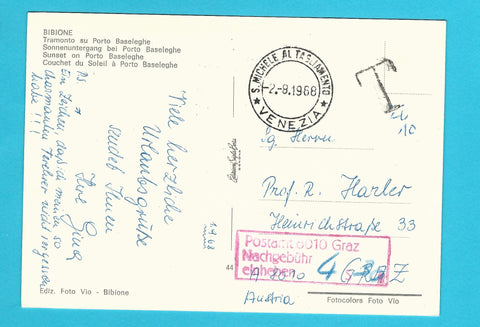 BIBIONE
Tramonto su Porto Baseleghe
Sonnenuntergang bei Porto Baseleghe
Sunset on Porto Baseleghe
Couchet du Soleil à Porto Baseleghe
PS
Ein Zeichen, daß ich meinen so
charmanten Verehrer nicht vergessen
habe!!!
Viele herzliche
Urlaubsgrüße
sendet Ihnen
Ihre
1.9.68
Ediz. Foto Vio - Bibione
S. MICHELE AL TAGLIAMENTO
-2.-9.1968
★ VENEZIA ★
T
Sg. Herrn
Prof. R. Harler
Heinrichstraße 33
Postamt 8010 Graz
Nachgebühr
einheben
44
A 8010 GRAZ
Austria
Fotocolors Foto Vio